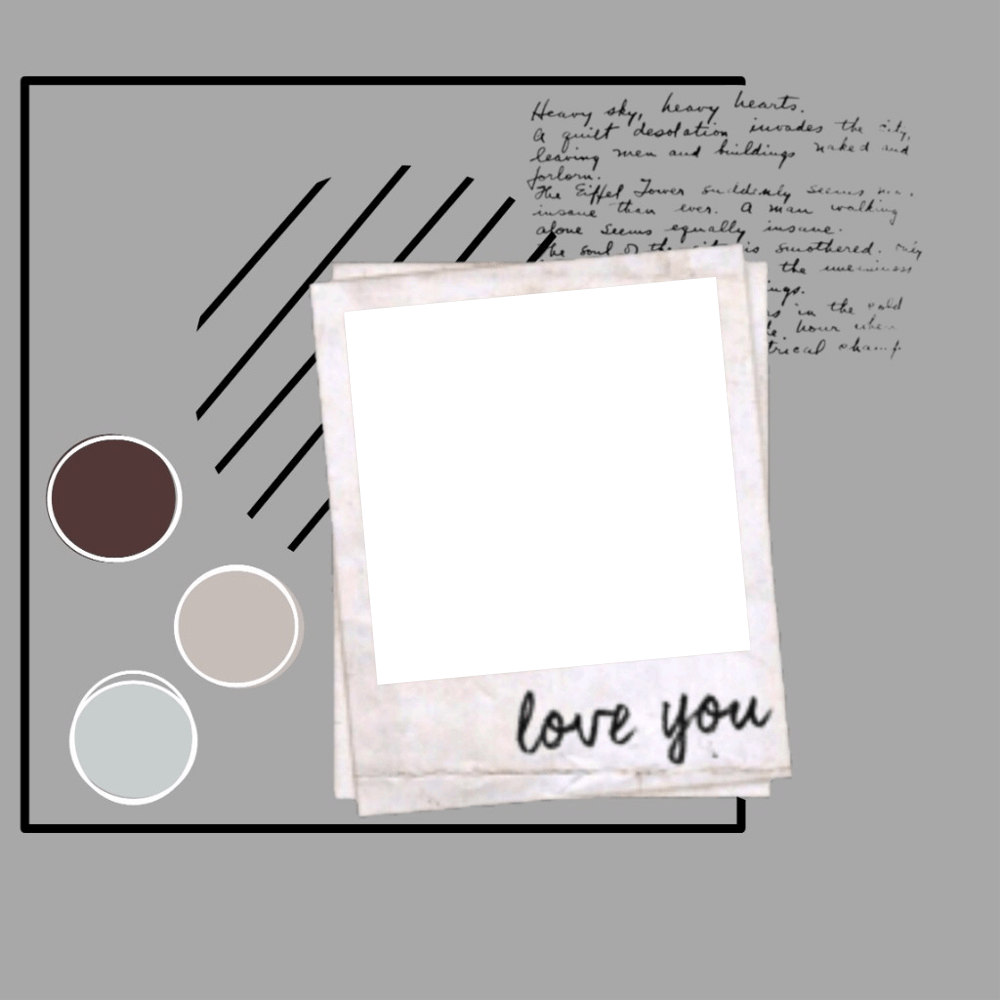 Heavy sky, heavy hearts.
A quiet desolation invades the city,
leaving men and buildings naked and
forlorn.
The Eiffel Tower suddenly seems
insane than ever. A man walking
alone seems equally insane.
The soul of the city is smothered. only
the
ngs.
s in the
hour when
trical
love you